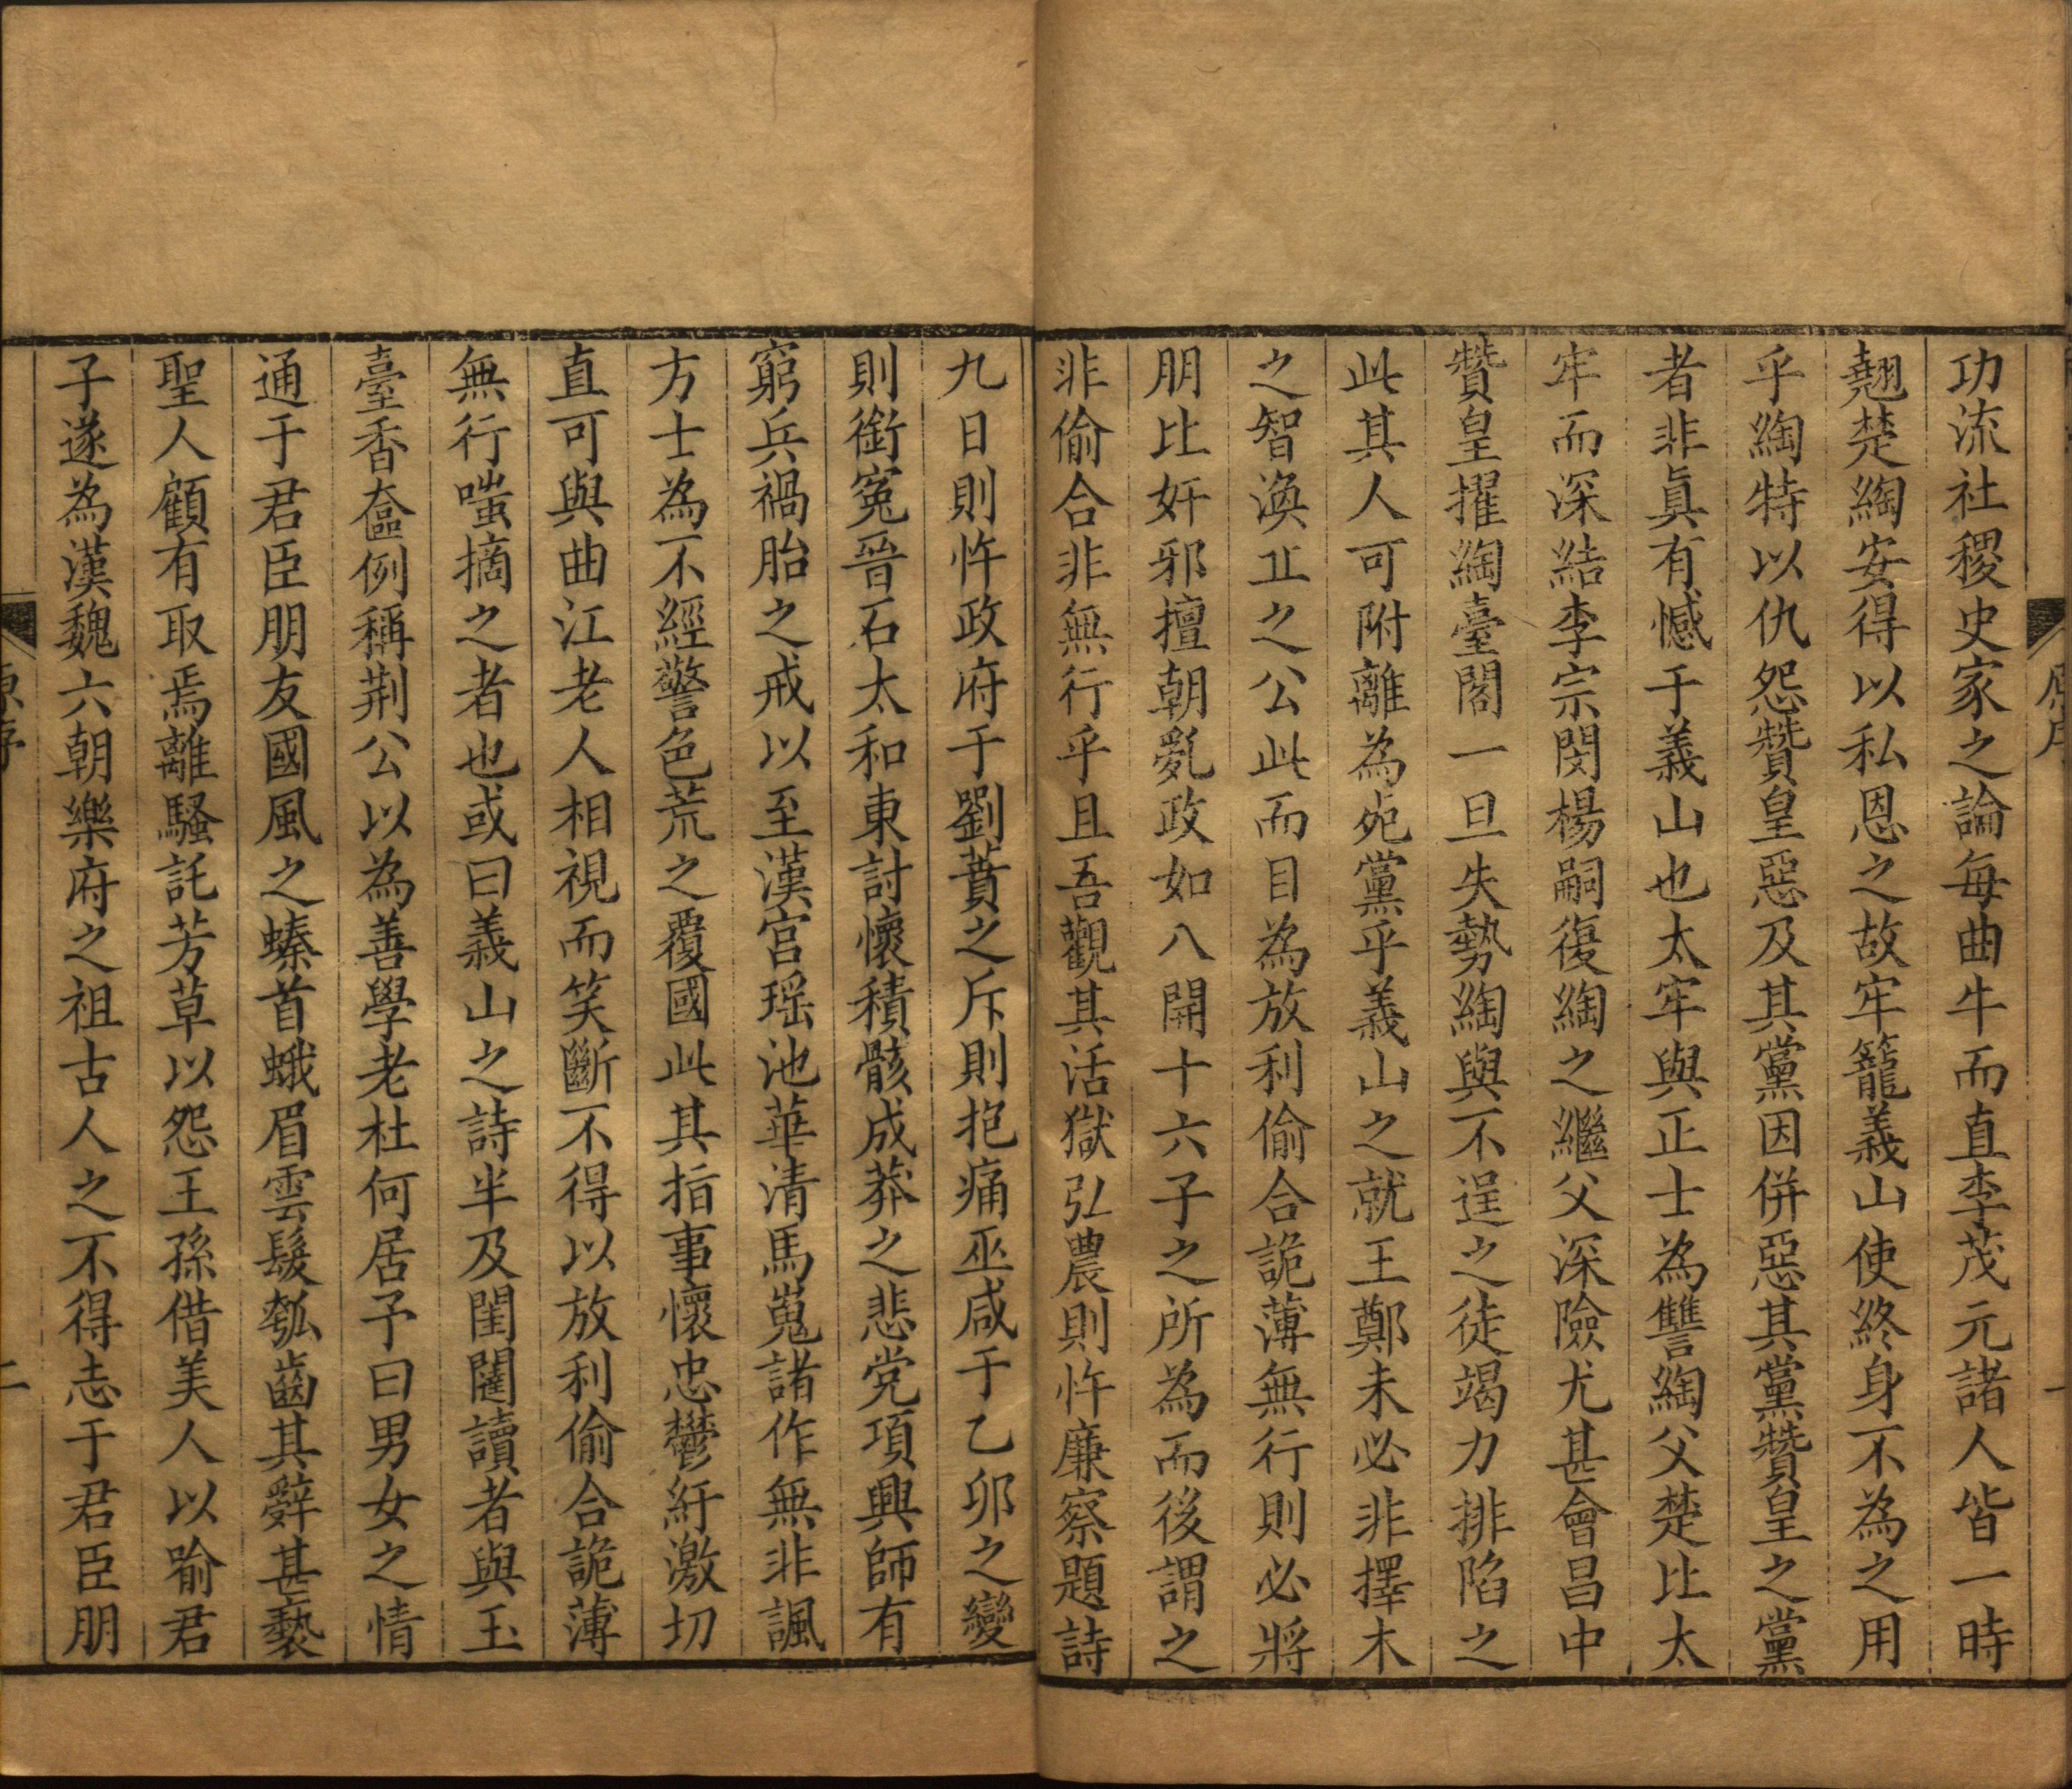 功流社稷史家之論每曲牛而直李茂元諸人皆一時
翹楚綯安得以私恩之故牢籠義山使終身不為之用
乎綯特以仇怨贊皇惡及其黨因併惡其黨贊皇之黨
者非眞有憾于義山也太牢與正士為讐綯父楚比太
牢而深結李宗閔楊嗣復綯之繼父深險尤甚會昌中
贊皇擢綯臺閣一旦失勢綯與不逞之徒竭力排陷之
此其人可附離為死黨乎義山之就王鄭未必非擇木
之智渙丘之公此而目為放利偷合詭薄無行則必將
朋比奸邪擅朝亂政如八關十六子之所為而後謂之
非偷合非無行乎且吾觀其活獄弘農則忤廉察題詩
九日則忤政府于劉蕡之斥則抱痛巫咸于乙卯之變
則銜冤晉石太和東討懷積骸成莽之悲党項興師有
窮兵禍胎之戒以至漢宫瑶池華清馬嵬諸作無非諷
方士為不經警色荒之覆國此其指事懷忠鬱紆激切
直可與曲江老人相視而笑斷不得以放利偷合詭薄
無行嗤摘之者也或曰義山之詩半及閨闥讀者與玉
臺香奩例稱荆公以為善學老杜何居予曰男女之情
通于君臣朋友國風之螓首蛾眉雲髮瓠齒其辭甚褻
聖人顧有取焉離騷託芳草以怨王孫借美人以喻君
子遂為漢魏六朝樂府之祖古人之不得志于君臣朋
原序
二